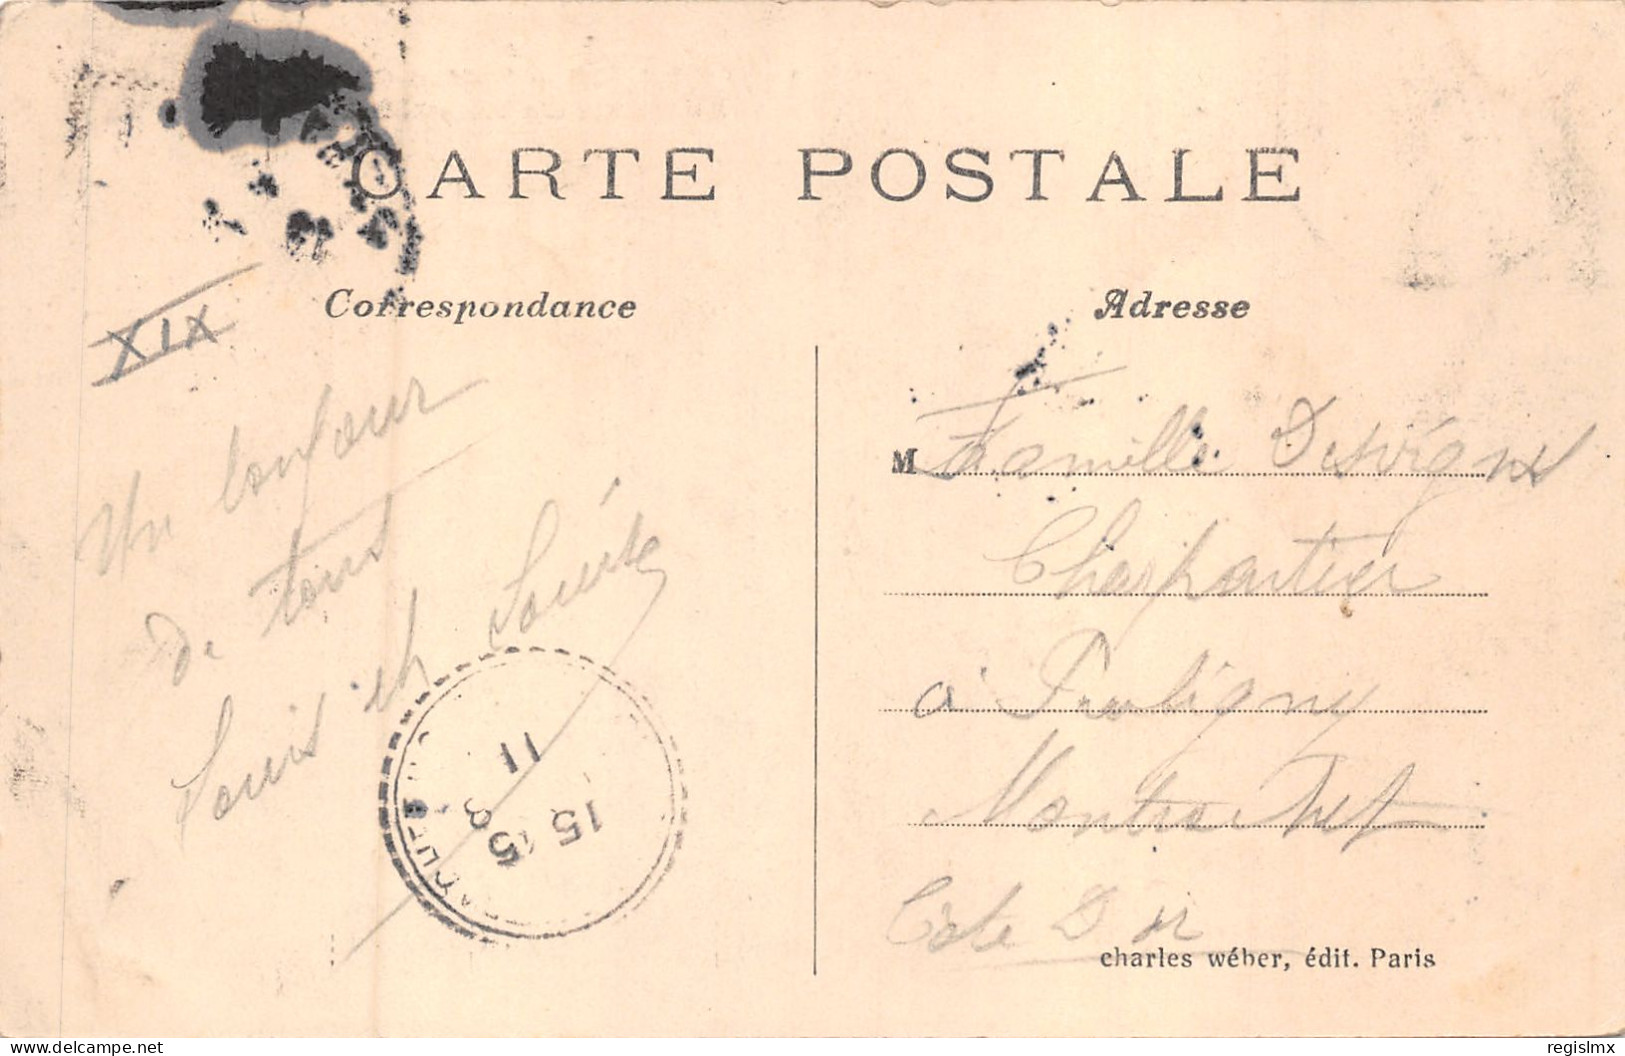 CARTE POSTALE
Correspondance
Adresse
XIX
Un bonjour
de tous
Louis et Louise
M Famille Desvignes
Charpentier
à Puligny
Montrachet
Côte D'or
11
15 15
charles wéber, édit. Paris
delcampe.net
regislmx